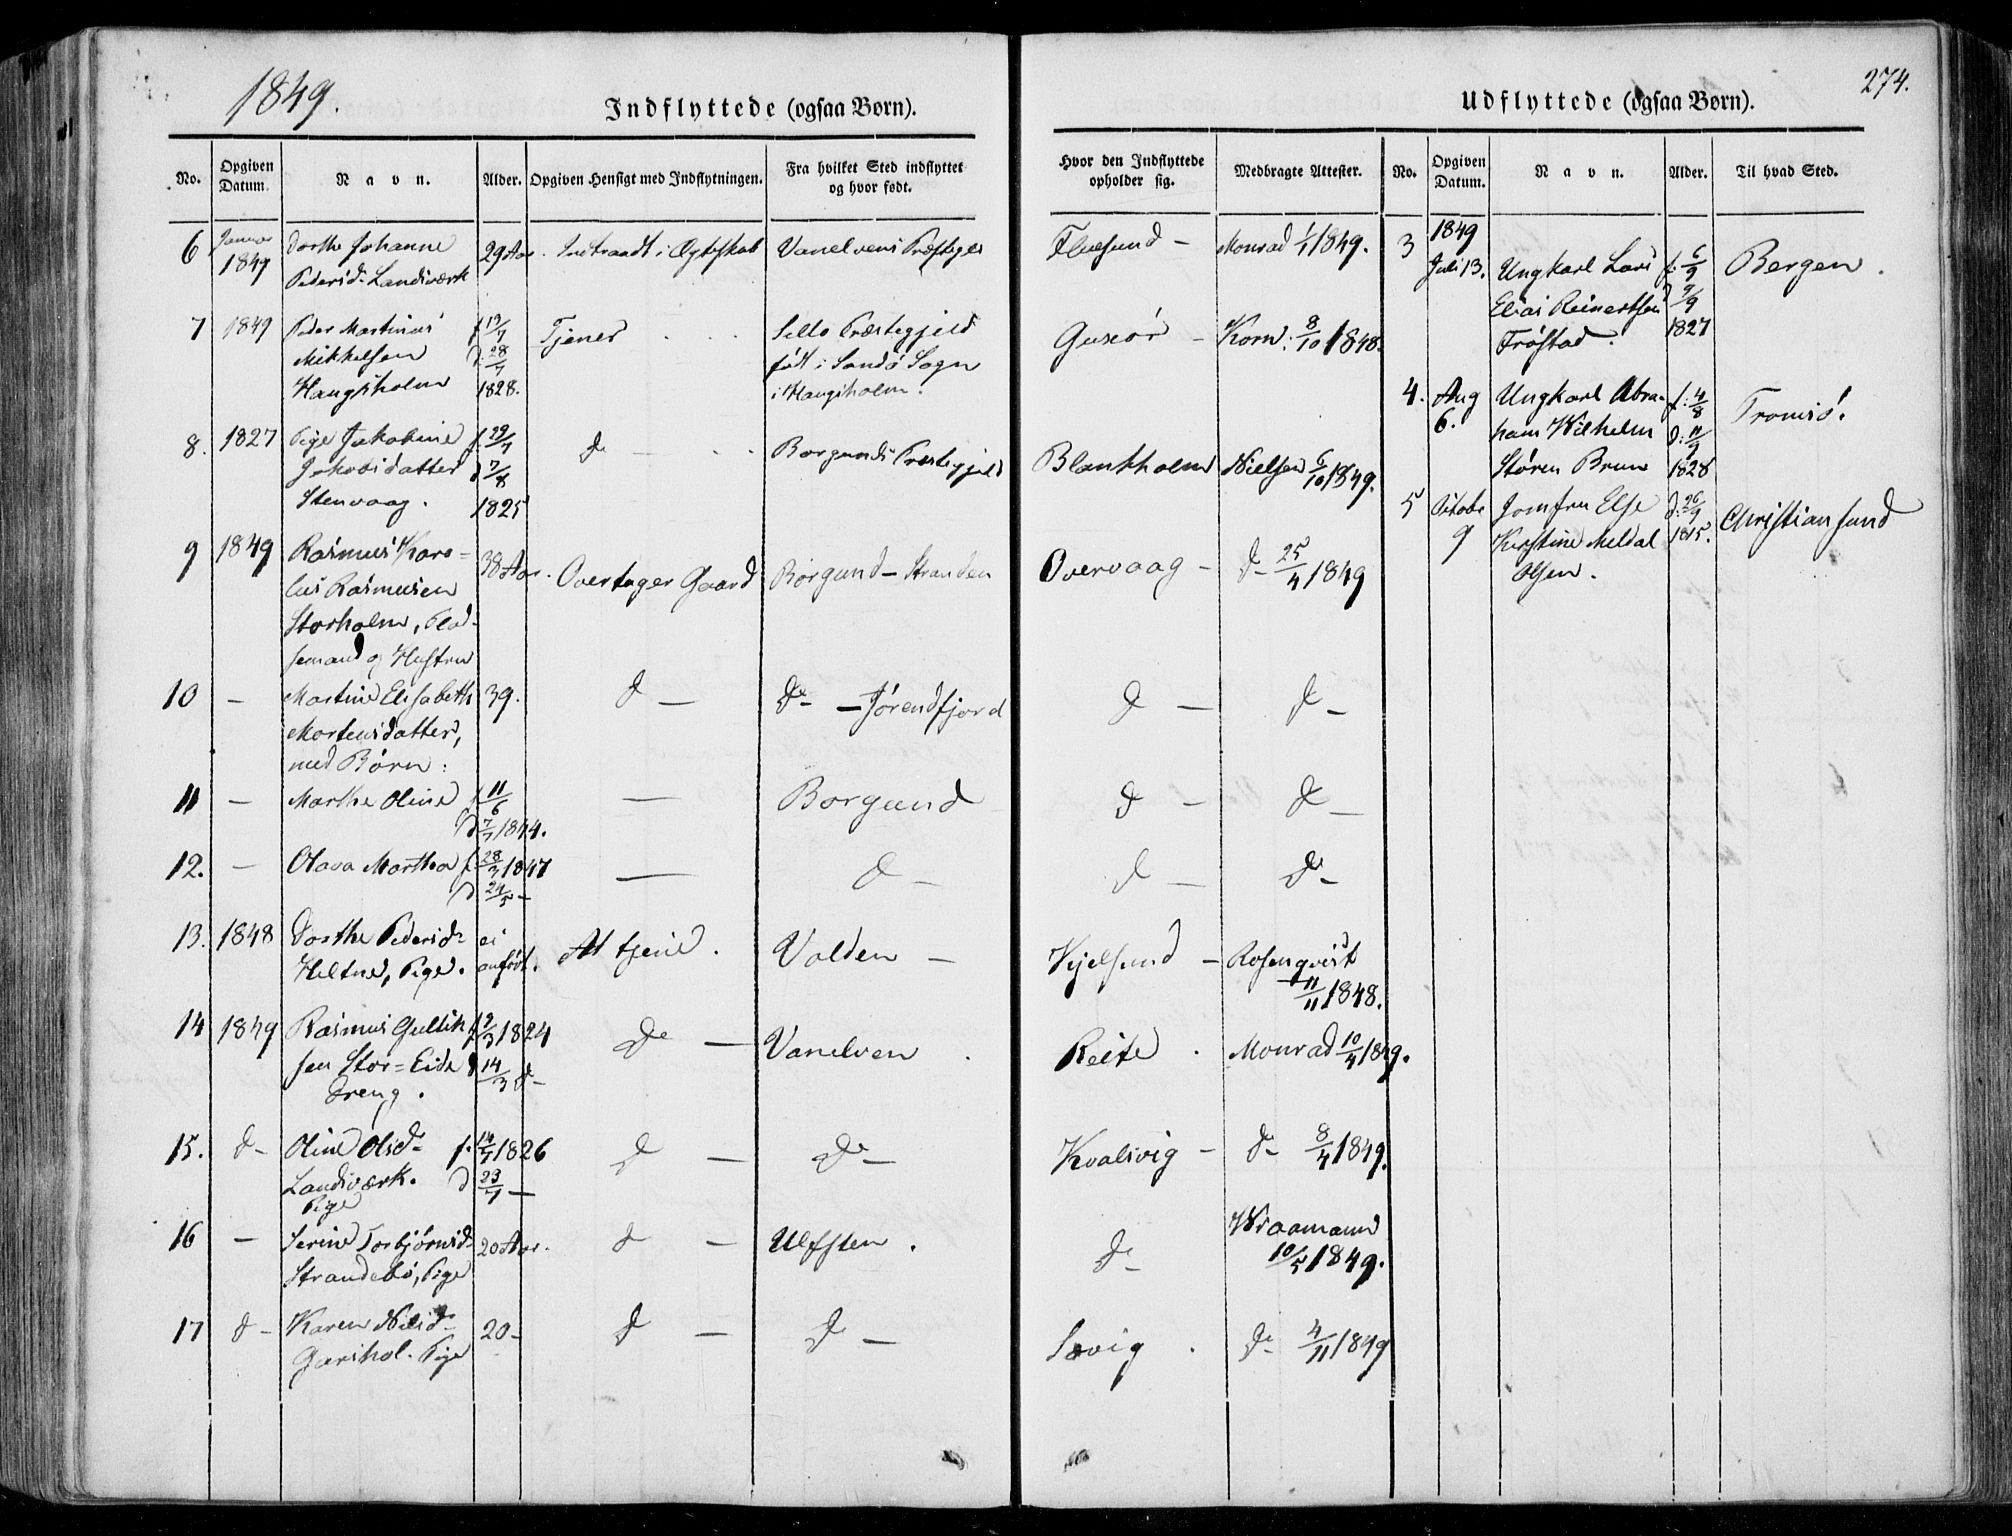 1849.
Indflyttede (ogsaa Børn).
No.
Opgiven Datum.
Navn.
Alder.
Opgiven Hensigt med Indflytningen.
Fra hvilket Sted indflyttet og hvor født.
6
Januar 1849
Dorthe Johanne
Pedersd. Landsværk
29 Aar.
Indtraadt i Ægteskab
Vanelvens Præstegjeld
7
1849
Peder Martinus
Mikkelsen
Haugsholm
f 19/7
d. 28/7
1828.
Tjener
Sello Præstegjeld
født i Sandø Sogn
i Haugsholm.
8.
1827
Pige Jakobine
Jakobsdatter
Stenvaag.
f. 29/7
d 7/8
1825
do
Borgunds Præstegjeld
9
1849
Rasmus Karo=
lus Rasmusen
Storholm, Plad-
semand og Hustru
38 Aar.
Overtager Gaard
Borgund - Stranden
10
-
Martine Elisabeth
Mortensdatter,
med Børn:
39.
do -
do - Jørendfjord
11
-
Marthe Oline
f 11/6
d 7/7 1844.
-
Borgund
12.
-
Olava Martha
f. 28/3 1847
d 24/5 -
-
do -
13.
1848
Dorthe Pedersd.
Heltne, Pige.
ei
anført.
At tjene.
Volden -
14
1849
Rasmus Gullik
sen Stor=Eide
Dreng.
f 9/3 1824
d 14/3 do -
do -
Vanelven.
15.
do -
Oline Olsd.
Landsværk.
Pige
f. 14/7 1826
d 23/7 -
do -
do -
16
-
Serine Torbjørnsd.
Strandebø, Pige
20 Aar.
do -
Ulfsten.
17
do -
Karen Nilsd.
Garshol. Pige
20 -
do -
do -
274.
Udflyttede (ogsaa Børn).
Hvor den Indflyttede opholder sig.
Medbragte Attester.
No.
Opgiven Datum.
Navn.
Alder.
Til hvad Sted.
Fluesund -
Monrad 1/1 1849.
Guseør -
Korn: 8/10 1848.
Blankholm
Nielsen 6/10 1849.
Overvaag -
do - 25/4 1849
do -
do -
do -
do -
do -
do -
Kjelsund -
Rosenqvist
11/11 1848.
Reite.
Monrad 10/4 1849.
Kvalsvig -
do 8/4 1849.
do -
Wraamann
10/5 1849.
Sævig.
do 4/11 1849
3
1849
Juli 13.
Ungkarl Lars
Elias Reinertsen
Frøstad.
f. 6/9
d 9/9
1827
Bergen.
4.
Aug
6.
Ungkarl Abra-
ham Wilhelm
Støren Brun
f: 4/8
d: 11/9
1828
Tromsø.
5
Octobr
9
Jomfru Else
Kirstine Meldal
Olsen.
d: 26/9
1815.
Christiansund